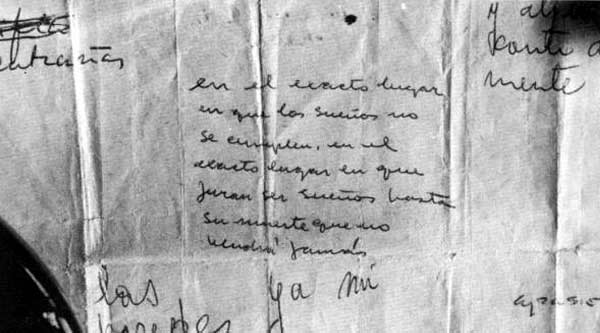 entrañas
en el exacto lugar
en que los sueños no
se cumplen, en el
exacto lugar en que
juran ser sueños hasta
su muerte que no
vendrá jamás
y
mente
las ya mi